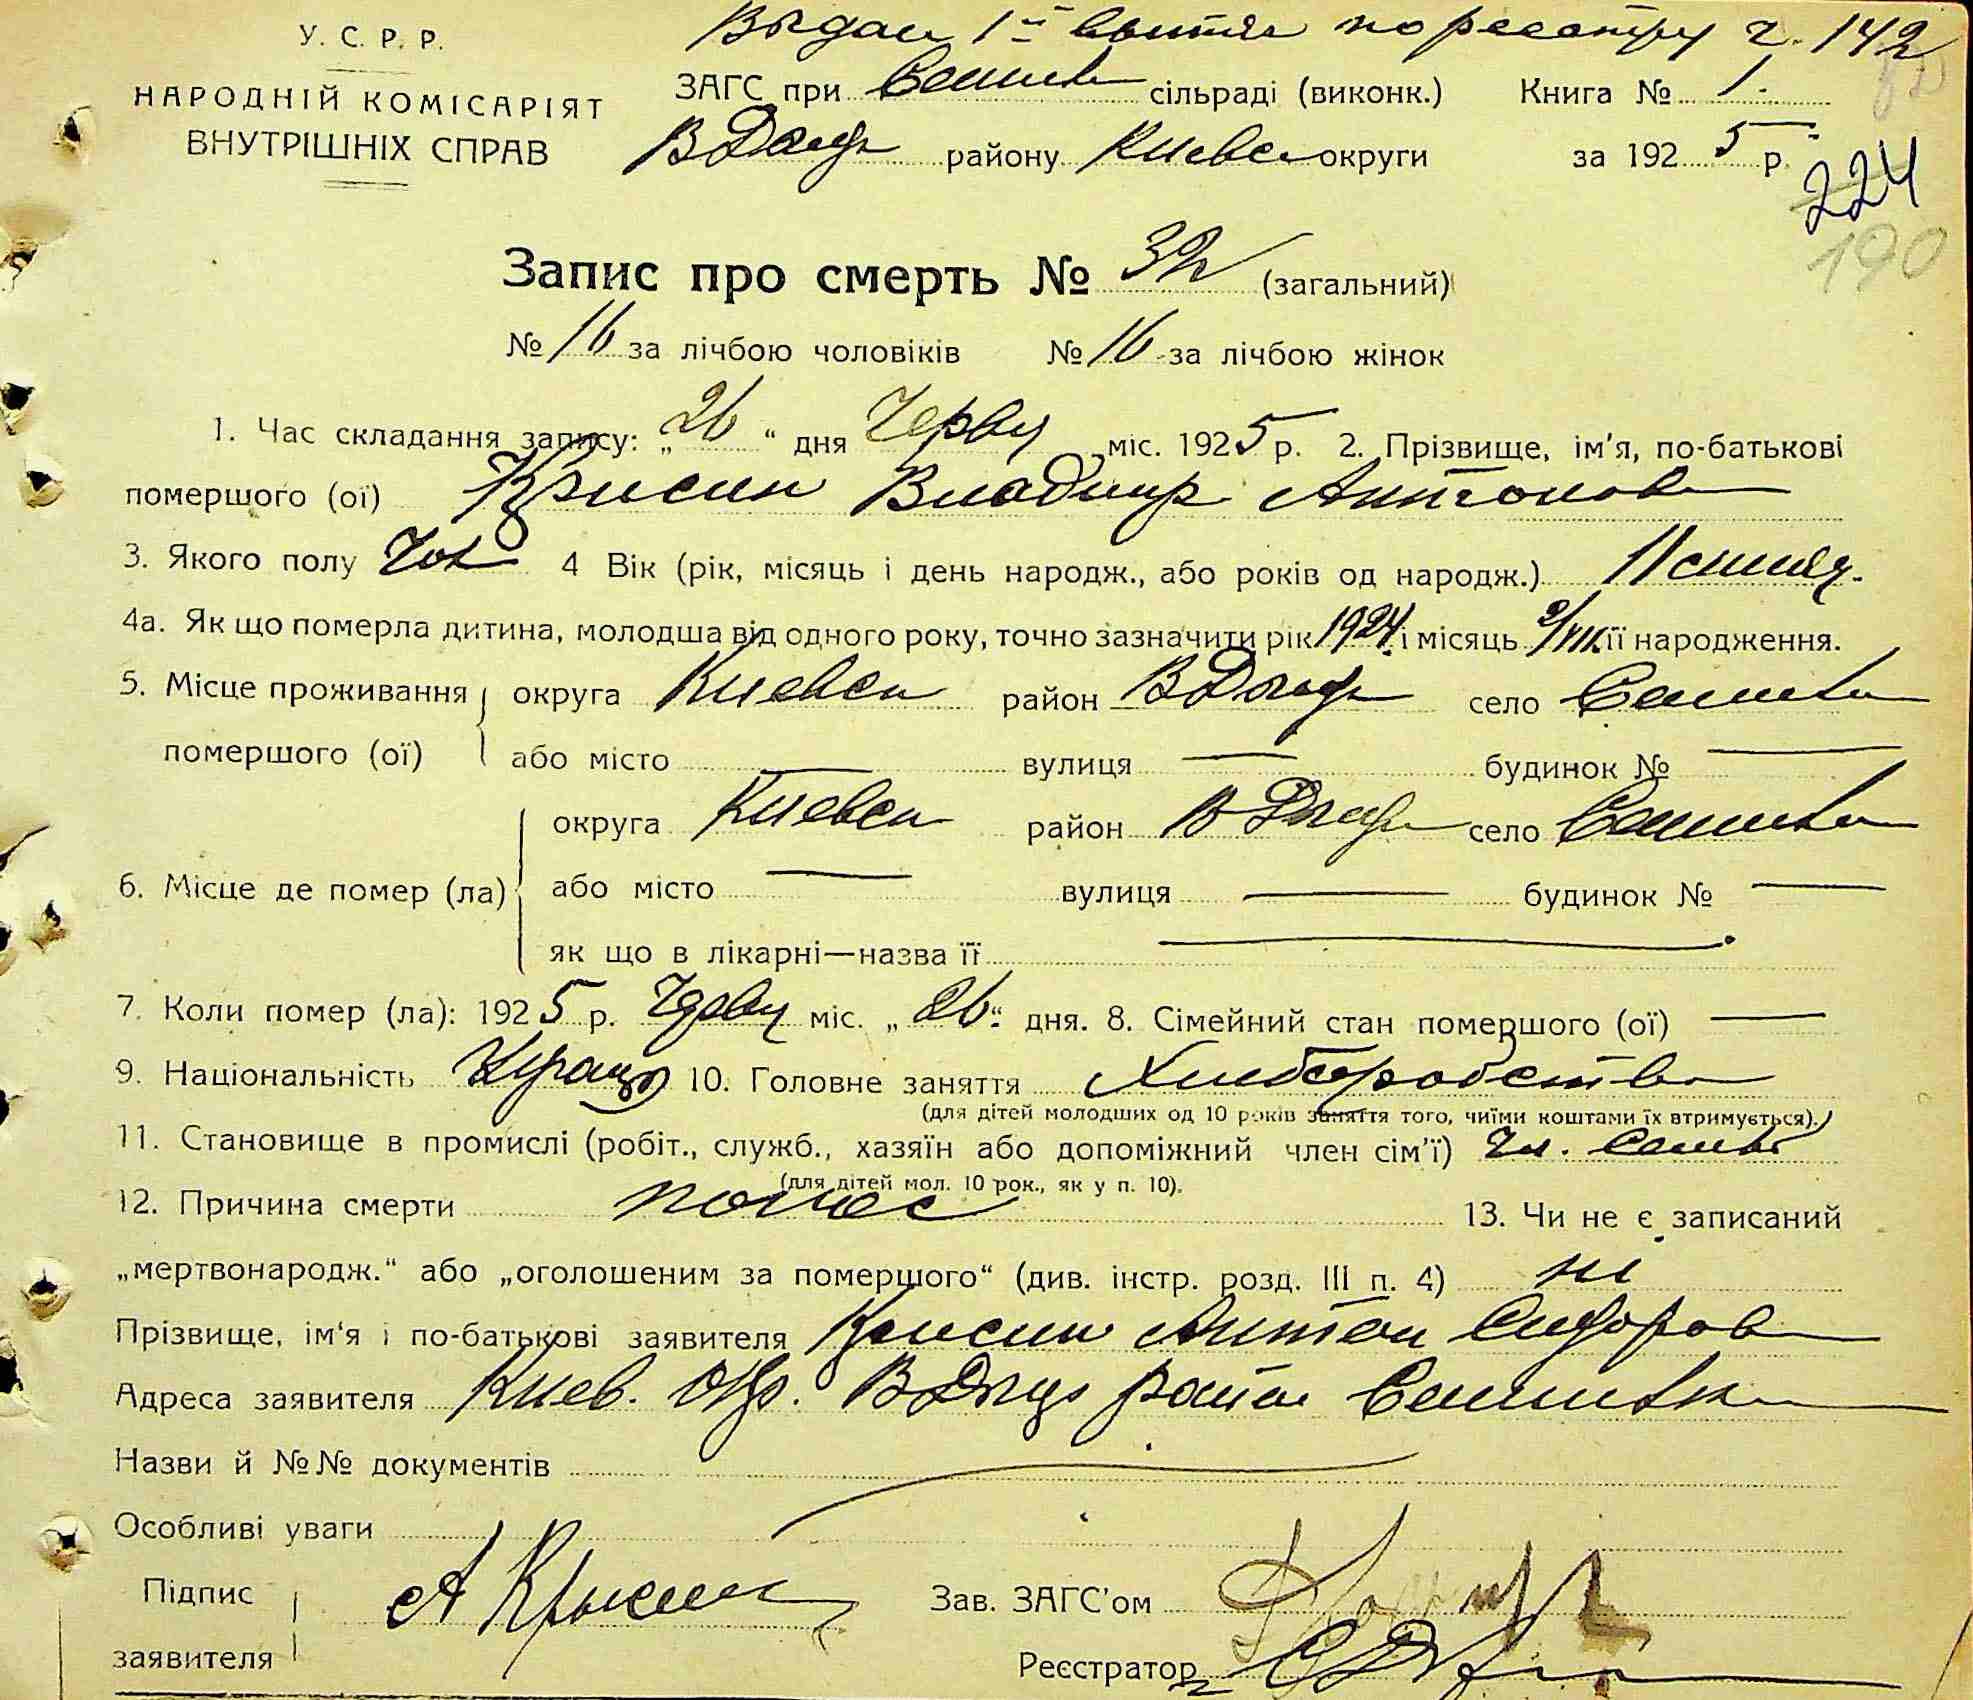 Выдан 1й по реестру г. 142
У. С. Р. Р.
НАРОДНІЙ КОМІСАРІЯТ
ВНУТРІШНІХ СПРАВ
ЗАГС при сільраді (виконк.) Книга № 1.
району Киевск округи за 1925 р.
224
190
Запис про смерть № 32 (загальний)
№ 16 за лічбою чоловіків № 16 за лічбою жінок
1. Час складання запису: „26“ дня Черву міс. 1925 р. 2. Прізвище, ім'я, по-батькові
помершого (ої) Крисин Владимр Антонов
3. Якого полу Чол 4 Вік (рік, місяць і день народж., або років од народж.) 11
4а. Як що померла дитина, молодша від одного року, точно зазначити рік 1924 і місяць її народження.
5. Місце проживання округа Киевск район село
помершого (ої) або місто — вулиця — будинок № —
округа Киевск район село
6. Місце де помер (ла) або місто — вулиця — будинок № —
як що в лікарні—назва її —
7. Коли помер (ла): 1925 р. Черву міс. „26“ дня. 8. Сімейний стан помершого (ої) —
9. Національність 10. Головне заняття Хлиборобство
(для дітей молодших од 10 років заняття того, чиїми коштами їх втримується).
11. Становище в промислі (робіт., служб., хазяїн або допоміжний член сім'ї) Чл. семьї
(для дітей мол. 10 рок., як у п. 10).
12. Причина смерти понос 13. Чи не є записаний
„мертвонародж.“ або „оголошеним за помершого“ (див. інстр. розд. III п. 4) ні
Прізвище, ім'я і по-батькові заявителя Крисин Антон Сидоров
Адреса заявителя Киев. окр. район
Назви й №№ документів
Особливі уваги
Підпис А Крысин Зав. ЗАГС'ом
заявителя Реєстратор